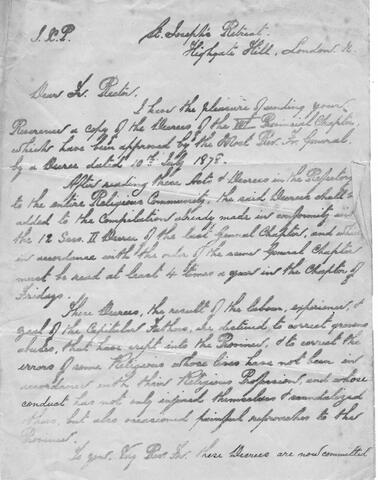 J.X.P.
St. Joseph's Retreat.
Highgate Hill, London N.
Dear Fr. Rector.
I have the pleasure of sending your
Reverence a copy of the Decrees of the Provincial Chapter,
which have been approved by the Most Rev. Fr. General,
by a Decree dated 10th July 1878.
After reading these Acts & Decrees in the Refectory
to the entire Religious Community, the said Decrees shall be
added to the Compilation already made in conformity with
the 12 Sess. II Decree of the last General Chapter, and
in accordance with the order of the same General Chapter
must be read at least 4 times a year in the Chapter of
Fridays.
These Decrees, the result of the labour, experience, &
zeal of the Capitular Fathers, are destined to correct grievous
abuses, that have crept into the Province, & to correct the
errors of some Religious whose lives have not been in
accordance with their Religious Profession, and whose
conduct has not only injured themselves & scandalized
others, but also occasioned painful reproaches to the
Province.
To you, Very Rev. Fr. these Decrees are now committed